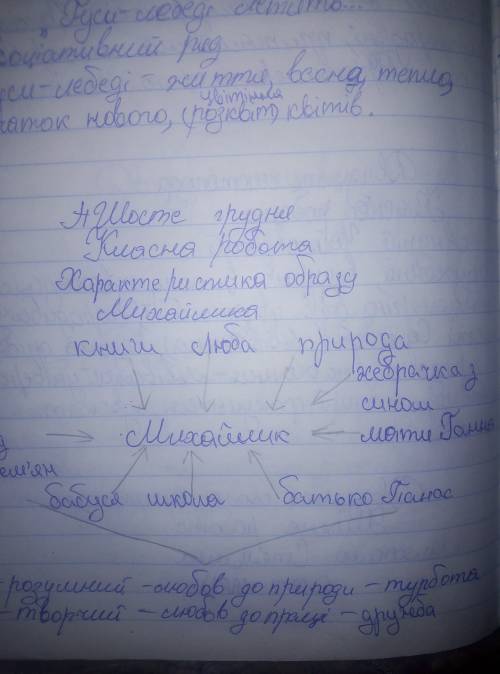 " Гуси-лебеді летять...
соціативний ряд
уси-лебеді - життя, весна, тепло,
цвітіння
чаток нового, (розквіт) квітів.
Шосте грудня
Класна робота
Характеристика образу
Михайлика
книги Люба природа
жебрачка з
сином
д Михайлик мати Ганна
ем'ян
бабуся школа батько Панас
- розумний - любов до природи - турбота
- творчий - любов до праці - дружба